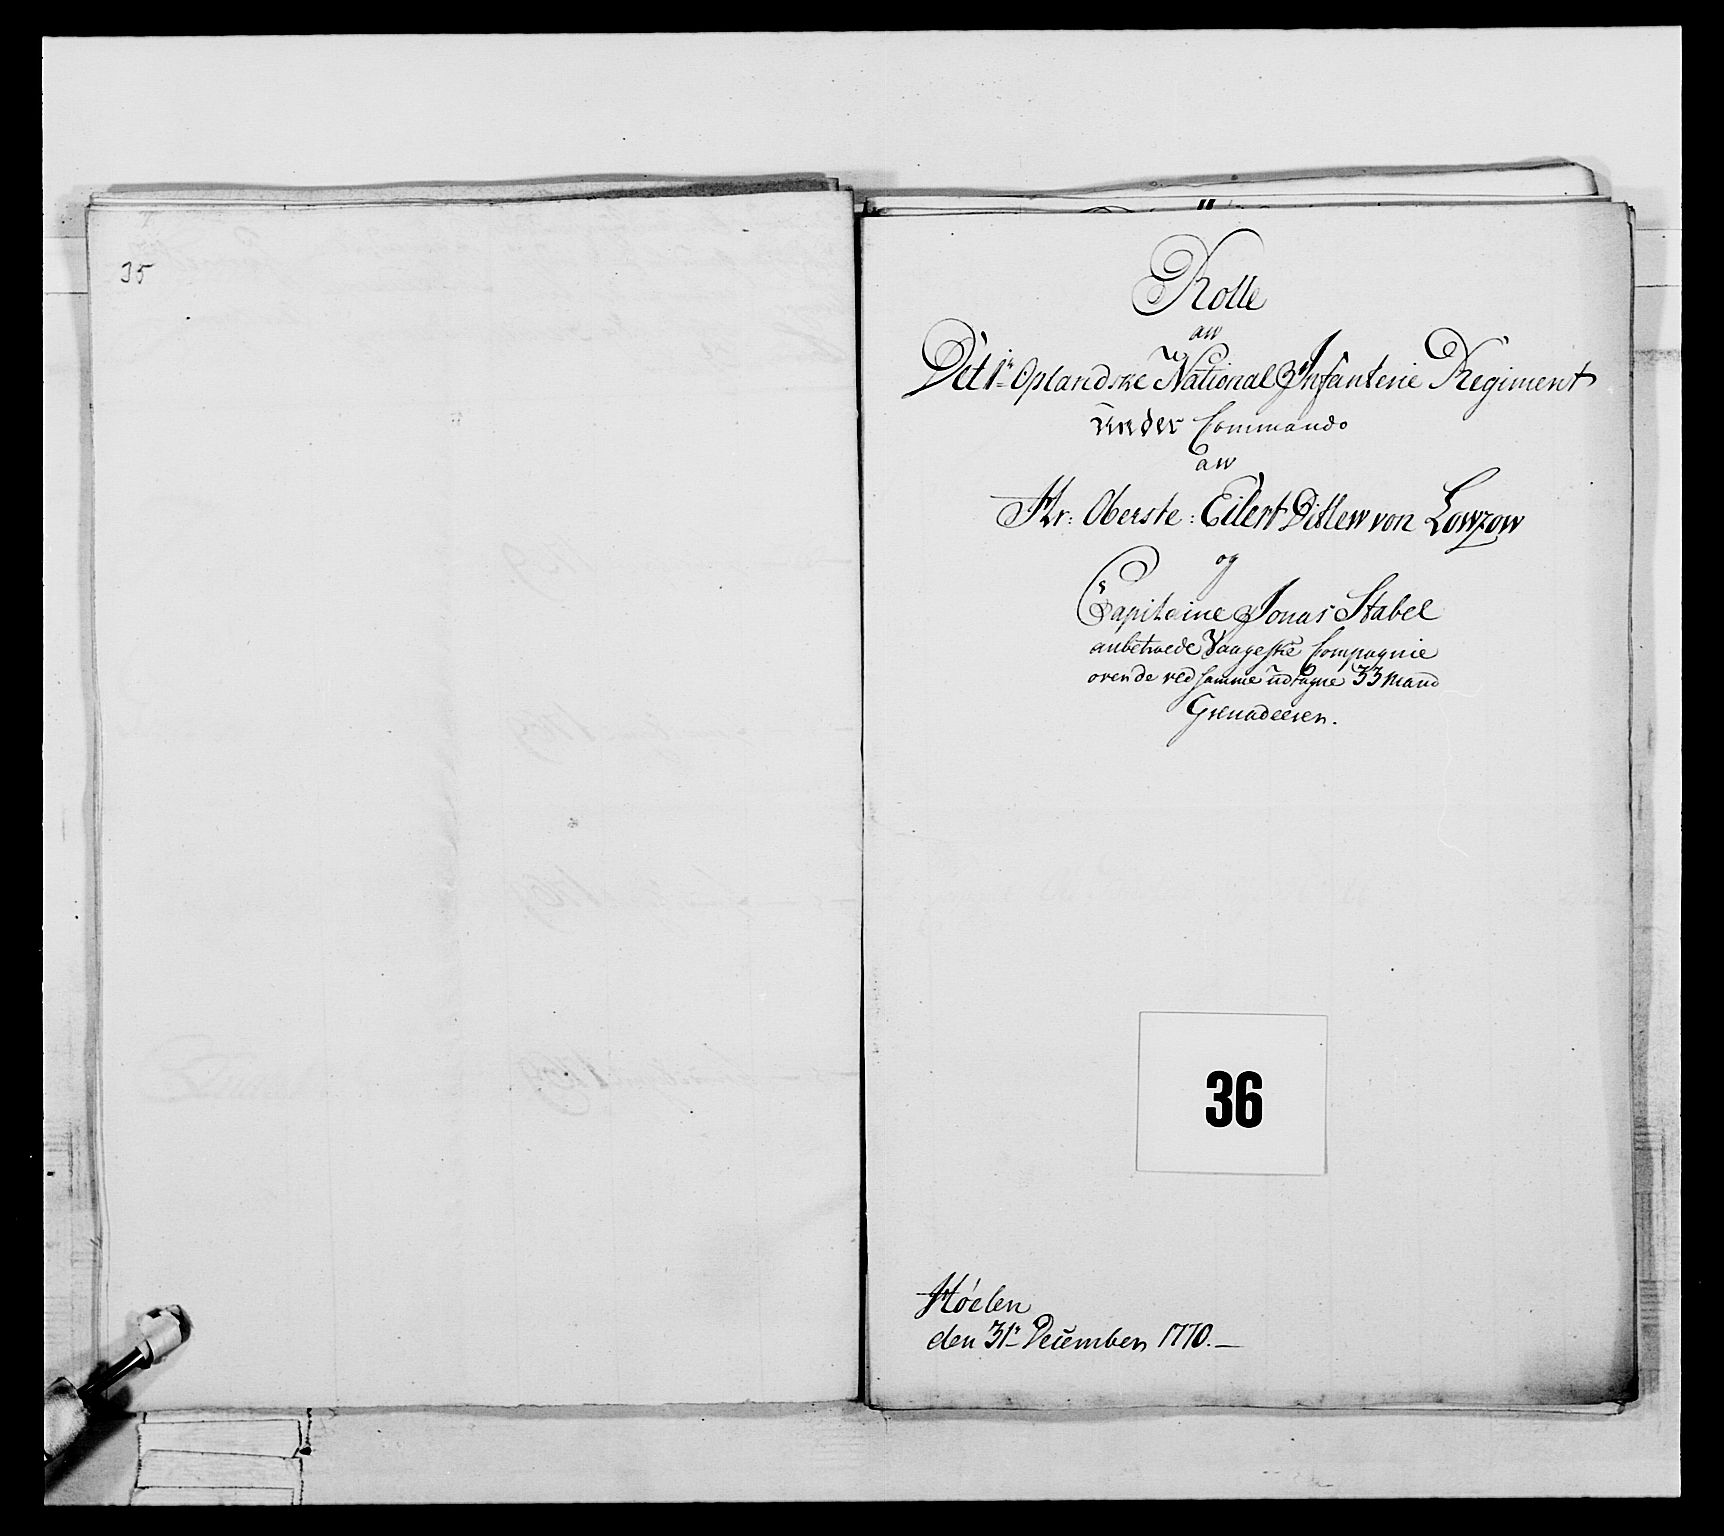 35
Rolle
aw
Det 1te Oplandske National Infanterie Regiment
under Commando
aw
Hr: Oberste: Eilert Ditlew von Lowzow
og
Capitaine Jonas Stabel
anbetroede Vaageske Compagnie
ovende ved samme udtagne 33 Mand
Grenadeerer.
36
Høelen
den 31te December 1770.